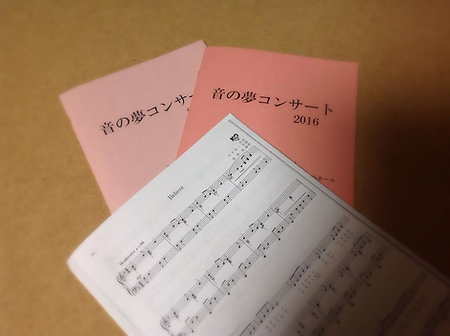 音の夢コンサー
音の夢コンサート
2016
ホール
Believe